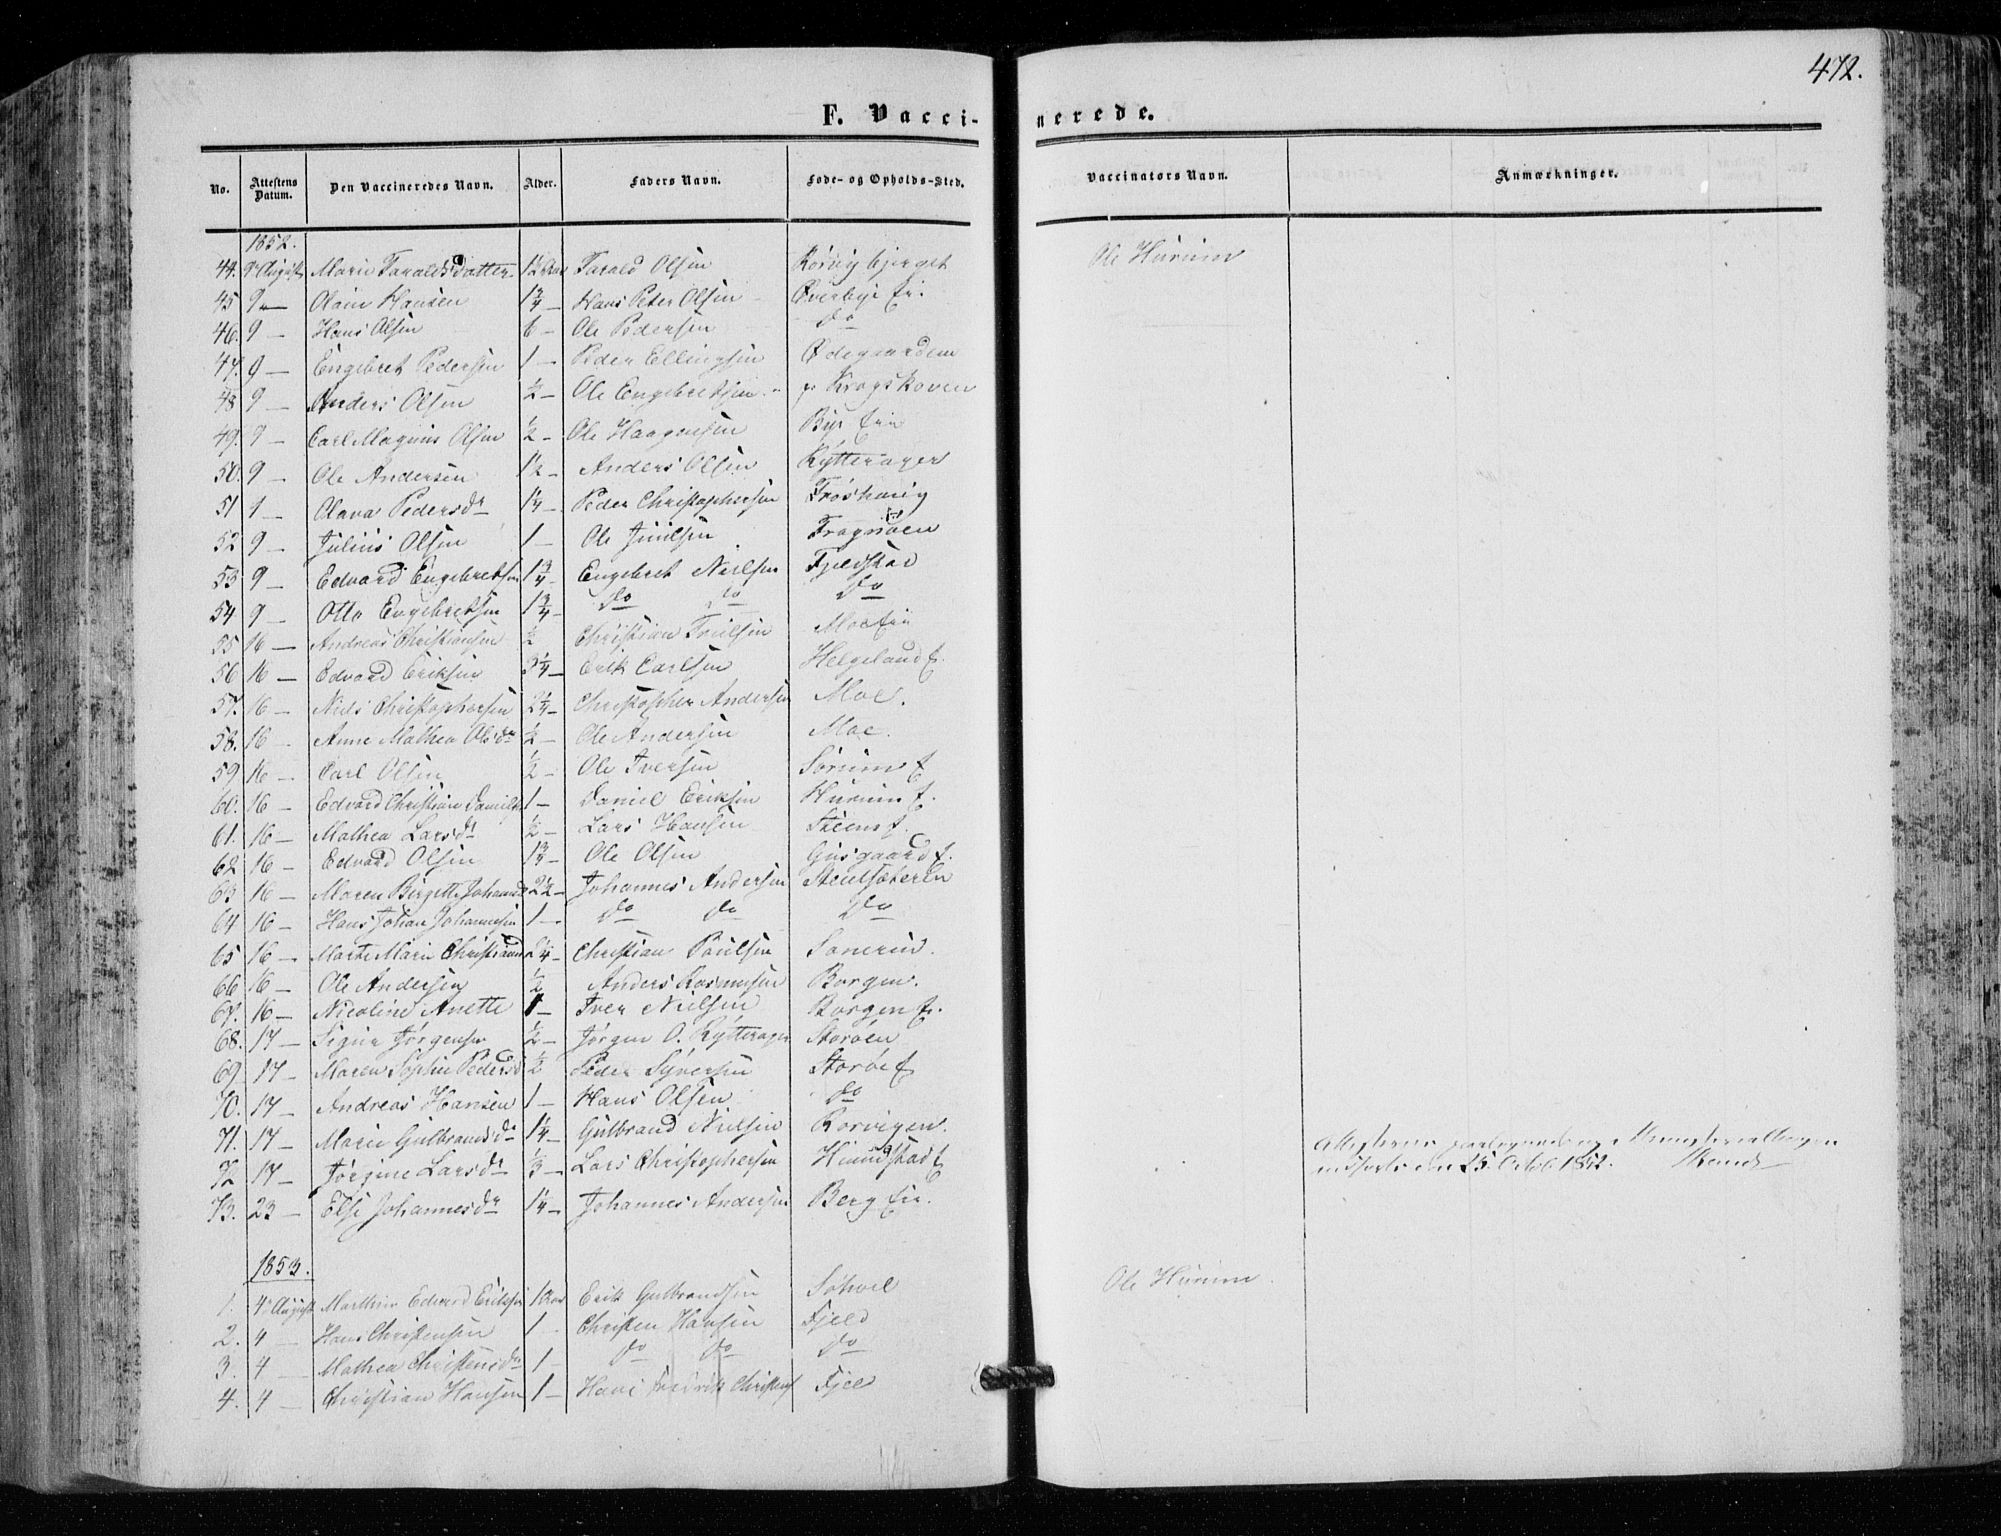 472.
F. Vacci-nerede.
No. Attestens Datum. Den Vaccineredes Navn. Alder. Faders Navn. Føde- og Opholds-Sted. Vaccinators Navn. Anmærkninger.
1852.
44. 9 August Marie Taraldsdatter 1½ Aar Tarald Olsen Ole Hurum
45 9 — Hansen 1¾ — Hans Peter Olsen Øverbye
46. 9 — Hans Olsen 6 — Ole Pedersen do
47. 9 — Engebret Pedersen 1 — Peder Ellingsen Ødegaarden
48 9 — Anders Olsen ½ — Ole Engebretsen Krogskoven
49. 9 — Carl Magnus Olsen ½ — Ole Haagensen Bye
50. 9 — Ole Andersen 1½ — Anders Olsen Rytterager
51 9 — Olava Pedersdr 1¼ — Peder Christophersen Frøshaug
52 9 — Julius Olsen 1 — Ole Juulsen
53 9 — Edvard Engebretsen 1¾ — Engebret Nielsen Fjeldstad
54 9 — Otto Engebretsen 1¾ — do do do
55 16 — Andreas Christiansen ½ Christian Moe
56 16 — Edvard Eriksen 3¼ — Erik Carlsen Helgeland f.
57. 16 — Niels Christophersen 2¼ — Christopher Andersen Moe.
58. 16 — Anne Mathea Olsdr ½ — Ole Andersen Moe.
59 16 — Carl Olsen ½ — Ole Iversen Sørum f
60. 16 — Edvard Christian Daniels 1 — Daniel Eriksen Hurum f.
61. 16 — Mathea Larsdr ½ — Lars Hansen Steens f.
62 16 — Edvard Olsen 1¾ — Ole Olsen Gusgaard f.
63 16 — Maren Birgitte Johannsd 2½ — Johannes Andersen Steensæteren
64 16 — Hans Johan Johannesen 1 — do do do
65 16 — Marte Marie Christiansd 2¼ — Christian Poulsen Sonerud.
66 16 — Ole Andersen ½ Anders Rasmusen Borgen.
67. 16 — Nicoline Anette 1 — Iver Nielsen Borgen f.
68. 17 — Signe Jørgensen ½ — Jørgen O. Rytterager Storøen
69 17 — Maren Sophie Pedersd ½ Peder Syversen Storøe f
70. 17 — Andreas Hansen 1 — Hans Olsen do
71. 17 — Marie Gulbrandsdr 1¼ — Gulbrand Nielsen Rørvigen.
72 17 — Jørgine Larsdr ⅓ — Lars Christophersen f den 25 Octob 1852.
73. 23 — Else Johannesdr 1¼ — Johannes Andersen Berg
1853.
1. 4 August Marthin Edvard Eriksen 1 Aar Erik Gulbrandsen Solvol Ole Hurum
2. 4 — Hans Christensen 1 — Christen Hansen Fjeld
3. 4 — Mathea Christensdr 1 — do do do
4. 4 — Christian Hansen 1 — Hans Fredrik Christens Fjeld